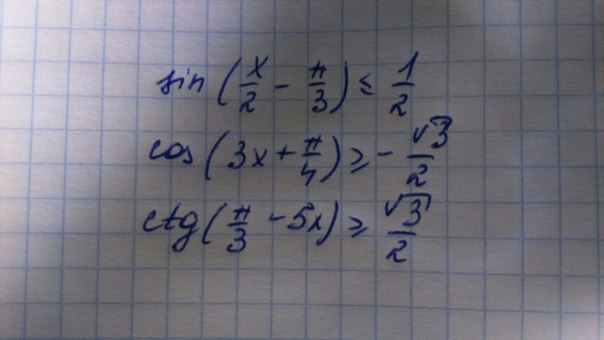 sin(x/2 - π/3) ≤ 1/2
cos(3x + π/4) ≥ -√3/2
ctg(π/3 - 5x) ≥ √3/2